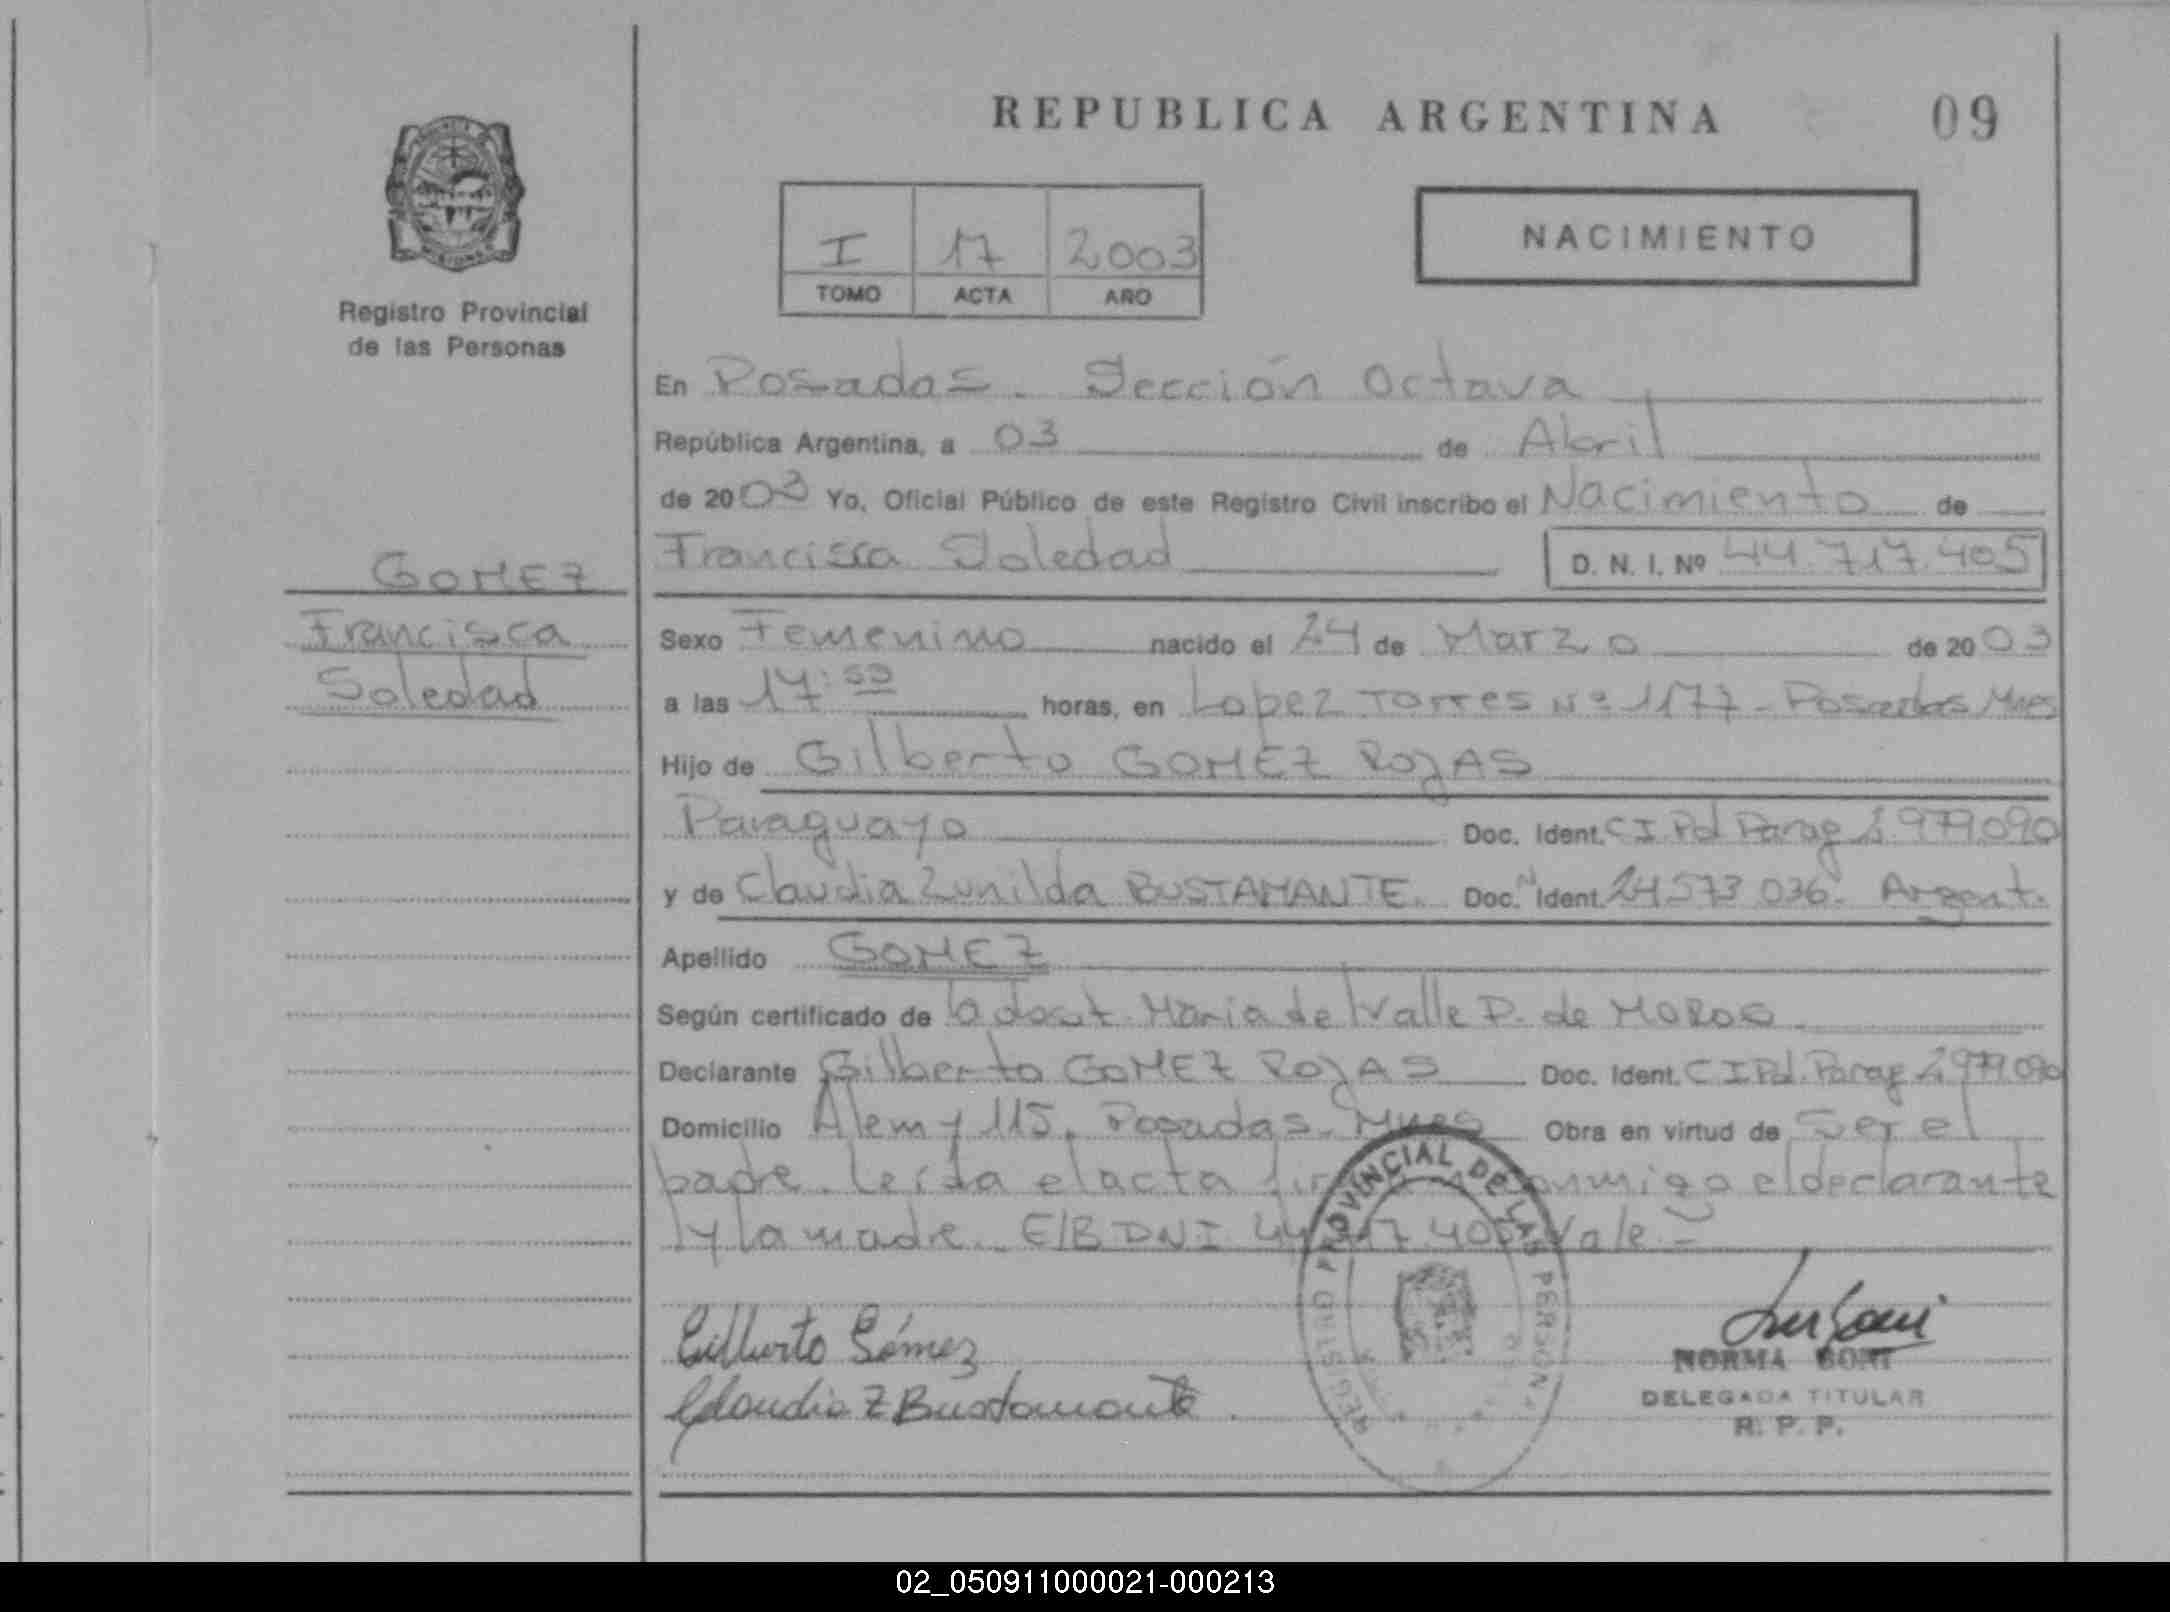 REPUBLICA ARGENTINA
09
I 17 2003
TOMO ACTA AÑO
NACIMIENTO
Registro Provincial
de las Personas
GOMEZ
Francisca
Soledad
En Posadas. Sección Octava
República Argentina, a 03 de Abril
de 2003 Yo, Oficial Público de este Registro Civil inscribo el Nacimiento de
Francisca Soledad D. N. I. Nº 44.717.405
Sexo Femenino nacido el 24 de Marzo de 2003
a las 17: horas, en Lopez Torres Nº 1177 - Posadas Mnes
Hijo de Gilberto GOMEZ ROJAS
Paraguayo Doc. Ident. C I. Pol Parag 2.979.090
y de Claudia Zunilda BUSTAMANTE. Doc. Ident. 24573 036. Argent.
Apellido GOMEZ
Según certificado de la doct. Maria del Valle P. de
Declarante Gilberto GOMEZ ROJAS Doc. Ident. C I Pol. Parag 2979.090
Domicilio Alem y 115. Posadas. Mnes Obra en virtud de Ser el
padre. Leída el acta conmigo el declarante
y la madre. E/B DNI 44 717 405 Vale. -
REGISTRO PROVINCIAL DE LAS PERSONAS
Gilberto Gómez
Claudia Z Bustamante
NORMA BONI
DELEGADA TITULAR
R. P. P.
02_050911000021-000213